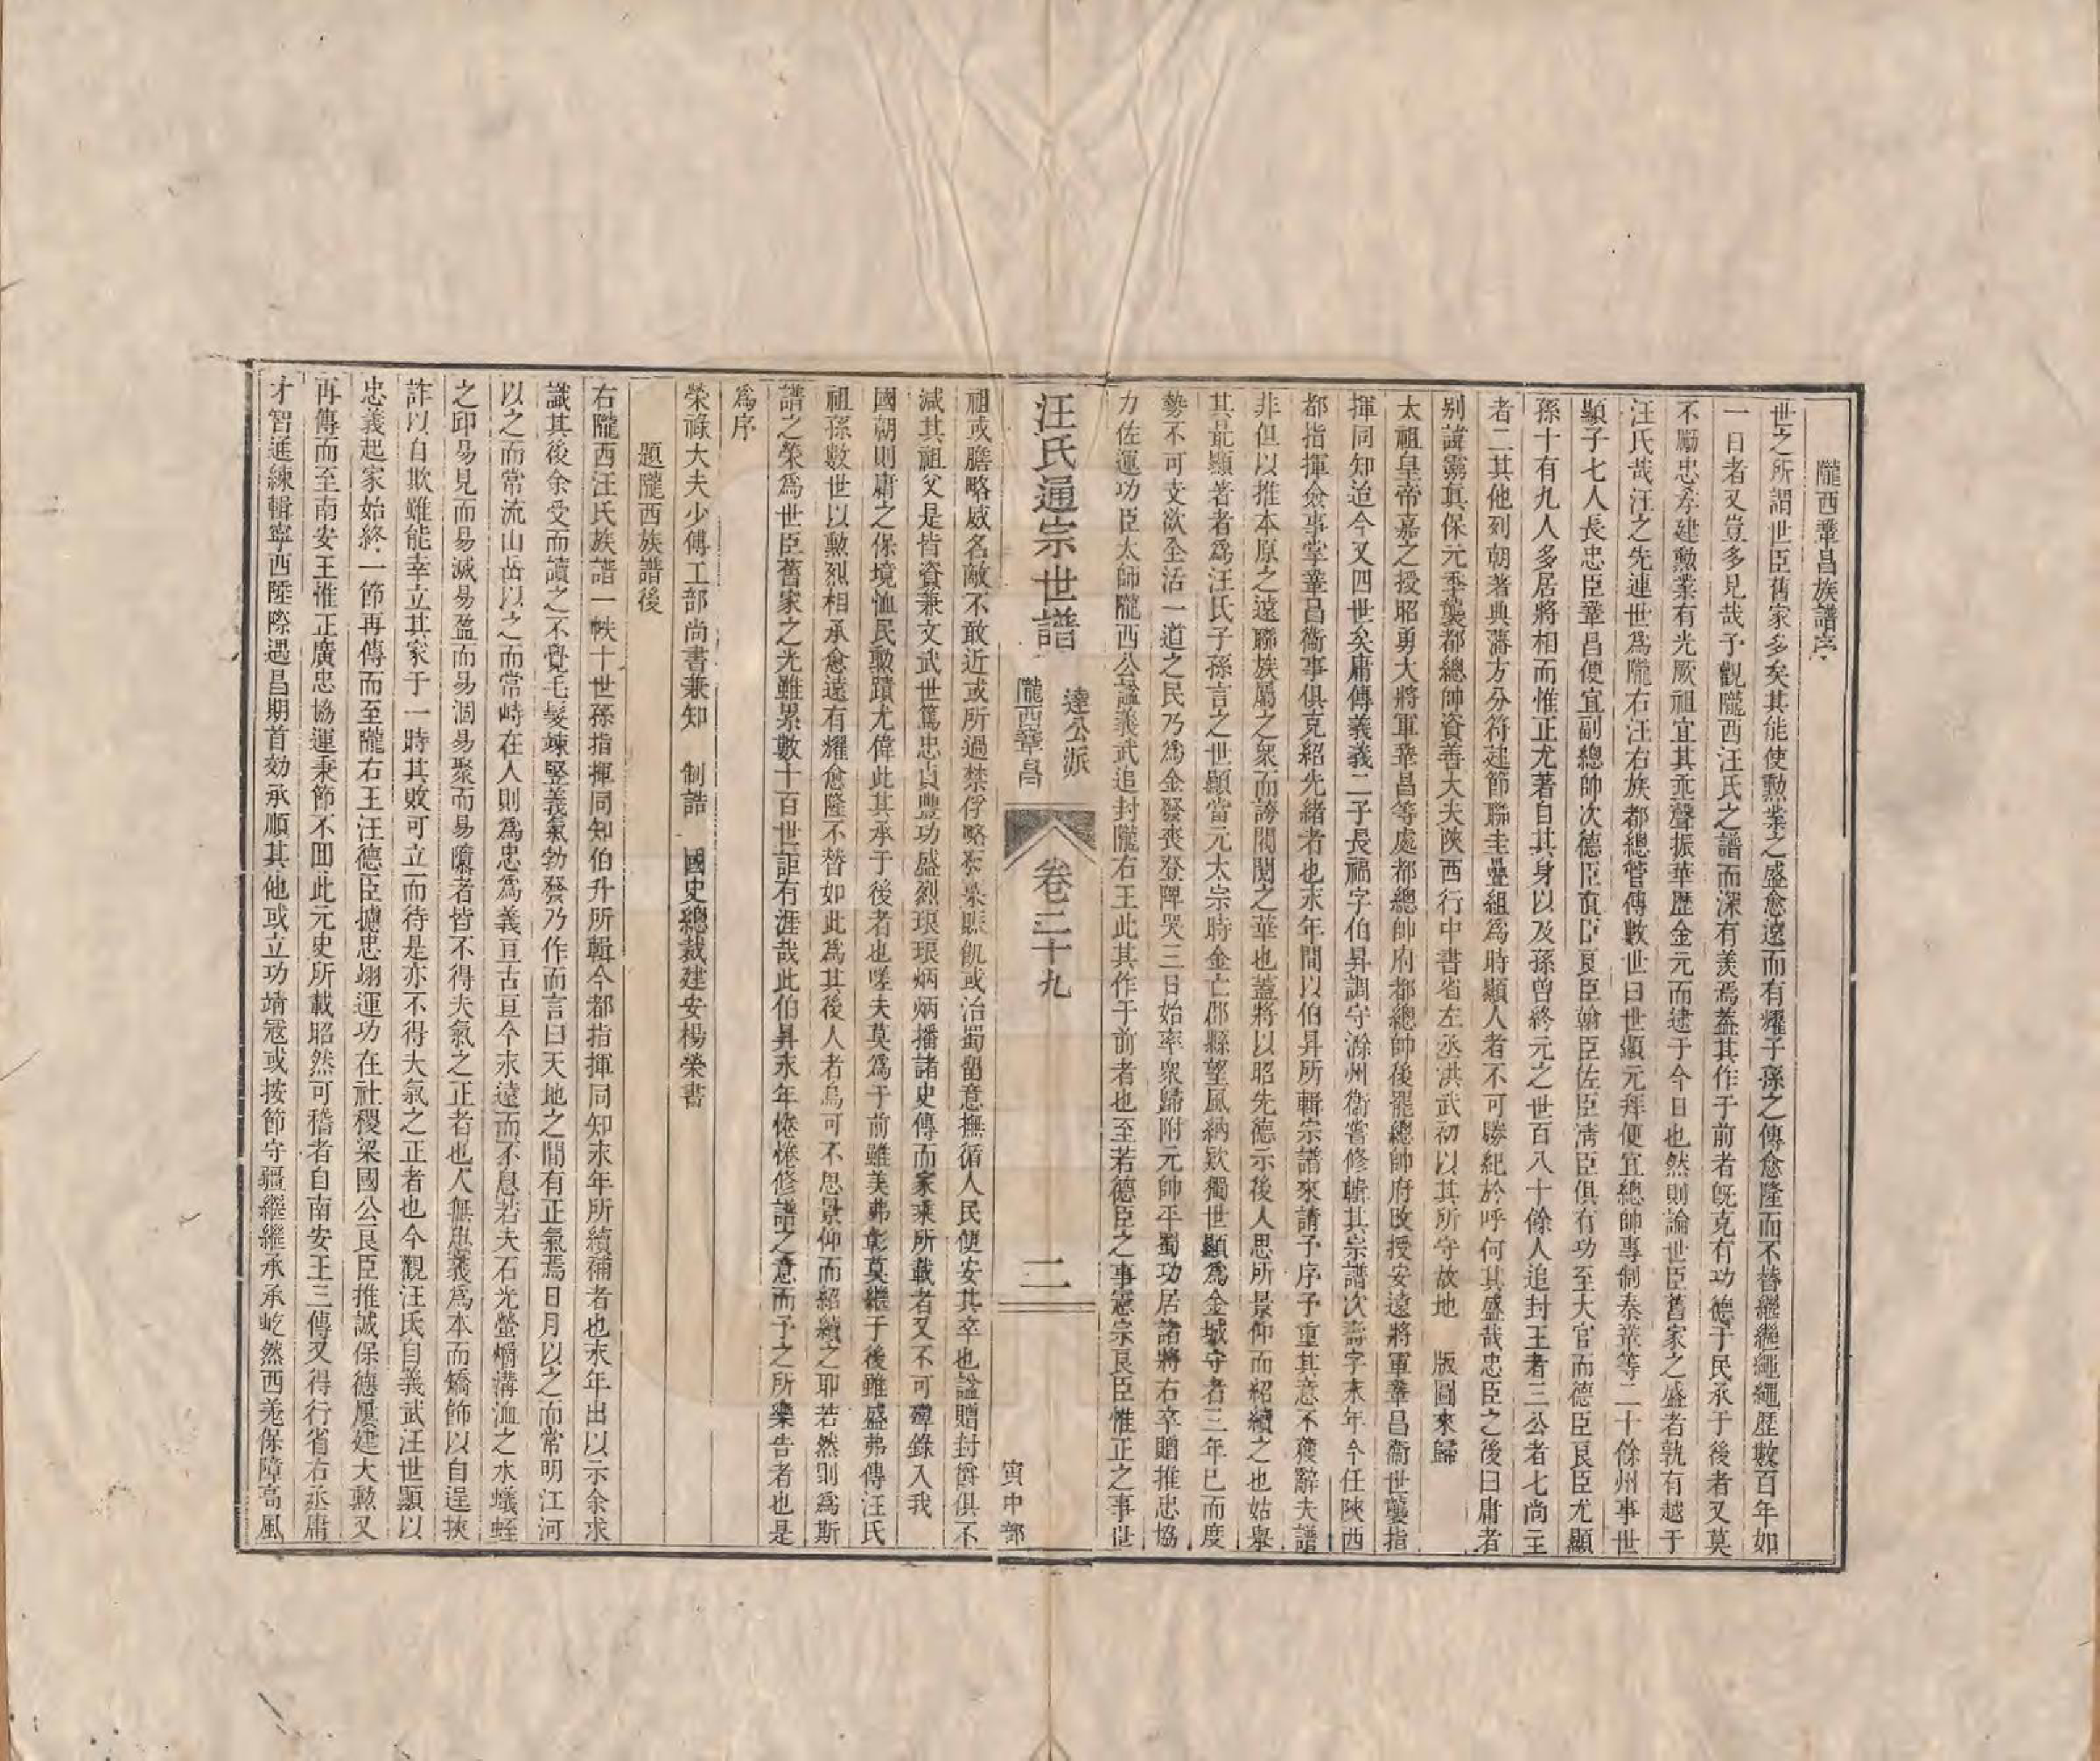 隴西鞏昌族譜序
世之所謂世臣舊家多矣其能使勲業之盛愈遠而有耀子孫之傳愈隆而不替繼繼繩繩歴數百年如
一日者又豈多見哉予觀隴西汪氏之譜而深有羨焉蓋其作于前者旣克有功德于民承于後者又莫
不勵忠孝建勲業有光厥祖宜其垂聲振華歴金元而逮于今日也然則論世臣舊家之盛者孰有越于
汪氏哉汪之先連世爲隴右汪右族都總管傳數世曰世顯元拜便宜總帥專制秦鞏等二十餘州事世
顯子七人長忠臣鞏昌便宜副總帥次德臣直臣良臣翰臣佐臣淸臣俱有功至大官而德臣良臣尤顯
孫十有九人多居將相而惟正尤著自其身以及孫曾終元之世百八十餘人追封王者三公者七尚主
者二其他列朝著典藩方分符建節聯圭疊組爲時顯人者不可勝紀於呼何其盛哉忠臣之後曰庸者
别諱靈真保元季襲都總帥資善大夫陜西行中書省左丞洪武初以其所守故地　版圖來歸
太祖皇帝嘉之授昭勇大將軍鞏昌等處都總帥府都總帥後罷總帥府改授安遠將軍鞏昌衞世襲指
揮同知迨今又四世矣庸傳義義二子長福字伯昇調守滁州衞嘗修輯其宗譜次壽字末年今任陜西
都指揮僉事掌鞏昌衞事俱克紹先緒者也末年間以伯昇所輯宗譜來請予序予重其意不獲辭夫譜
非但以推本原之遠聯族屬之衆而誇閥閱之華也蓋將以昭先德示後人思所景仰而紹續之也姑舉
其最顯著者爲汪氏子孫言之世顯當元太宗時金亡郡縣望風納欵獨世顯爲金城守者三年已而度
勢不可支欲全活一道之民乃爲金發喪登陴哭三日始率衆歸附元帥平蜀功居諸將右卒贈推忠協
力佐運功臣太師隴西公諡義武追封隴右王此其作于前者也至若德臣之事憲宗良臣惟正之事世
汪氏通宗世譜
達公派
隴西鞏昌
卷二十九
二
寅中部
祖或膽略威名敵不敢近或所過禁俘略賑飢或治蜀留意撫循人民便安其卒也諡贈封爵俱不
減其祖父是皆資兼文武世篤忠貞豐功盛烈琅琅炳炳播諸史傳而家乘所載者又不可殫錄入我
國朝則庸之保境恤民勲蹟尤偉此其承于後者也嗟夫莫爲于前雖美弗彰莫繼于後雖盛弗傳汪氏
祖孫數世以勲烈相承愈遠有耀愈隆不替如此爲其後人者烏可不思景仰而紹續之耶若然則爲斯
譜之榮爲世臣舊家之光雖累數十百世詎有涯哉此伯昇末年惓惓修譜之意而予之所樂告者也是
爲序
榮祿大夫少傅工部尚書兼知　制誥　國史總裁建安楊榮書
題隴西族譜後
右隴西汪氏族譜一帙十世孫指揮同知伯升所輯今都指揮同知末年所續補者也末年出以示余求
識其後余受而讀之不覺毛髮竦竪義氣勃發乃作而言曰天地之間有正氣焉日月以之而常明江河
以之而常流山岳以之而常峙在人則爲忠爲義亘古亘今末遠而不息若夫石光螢爝溝洫之水蟻蛭
之印易見而易滅易盈而易涸易聚而易隳者皆不得夫氣之正者也人無忠義爲本而矯飾以自逞挾
詐以自欺雖能幸立其家于一時其敗可立而待是亦不得大氣之正者也今觀汪氏自義武汪世顯以
忠義起家始終一節再傳而至隴右王汪德臣攄忠翊運功在社稷梁國公良臣推誠保德屢建大勲又
再傳而至南安王惟正廣忠協運秉節不回此元史所載昭然可稽者自南安王三傳又得行省右丞庸
才智進練輯寧西陲際遇昌期首効承順其他或立功靖冦或按節守疆繼繼承承屹然西羗保障高風